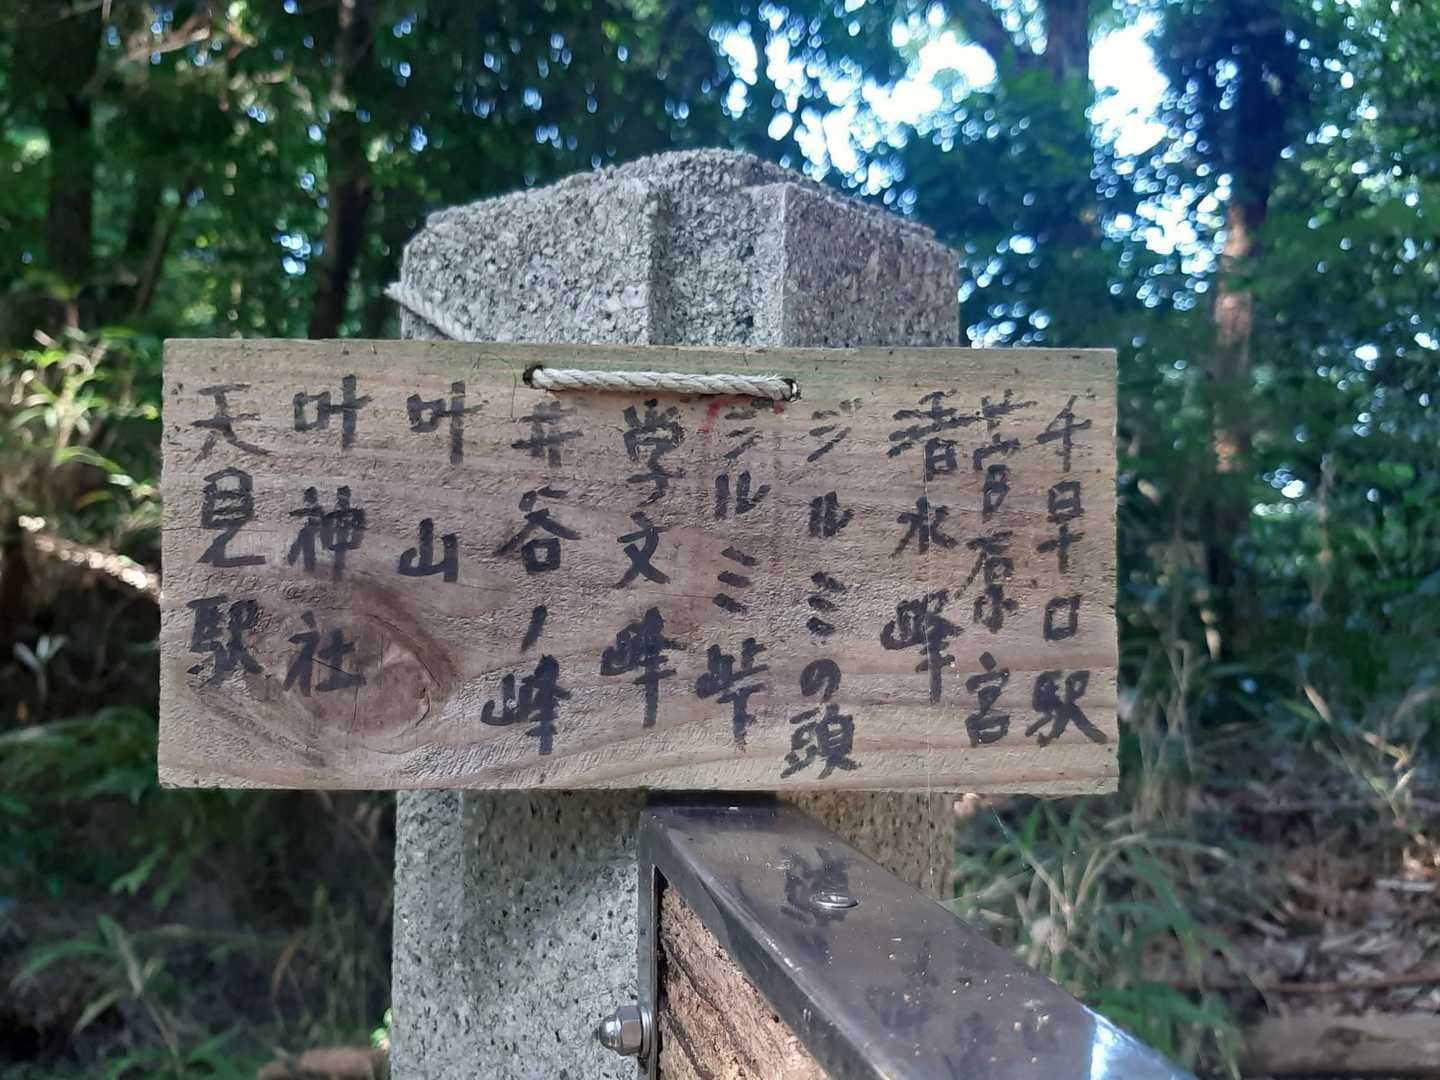 千早口駅
菅原宮
香水峰
ジルミの頭
ジルミ峠
学文峰
井谷ノ峰
叶山
叶神社
天見駅